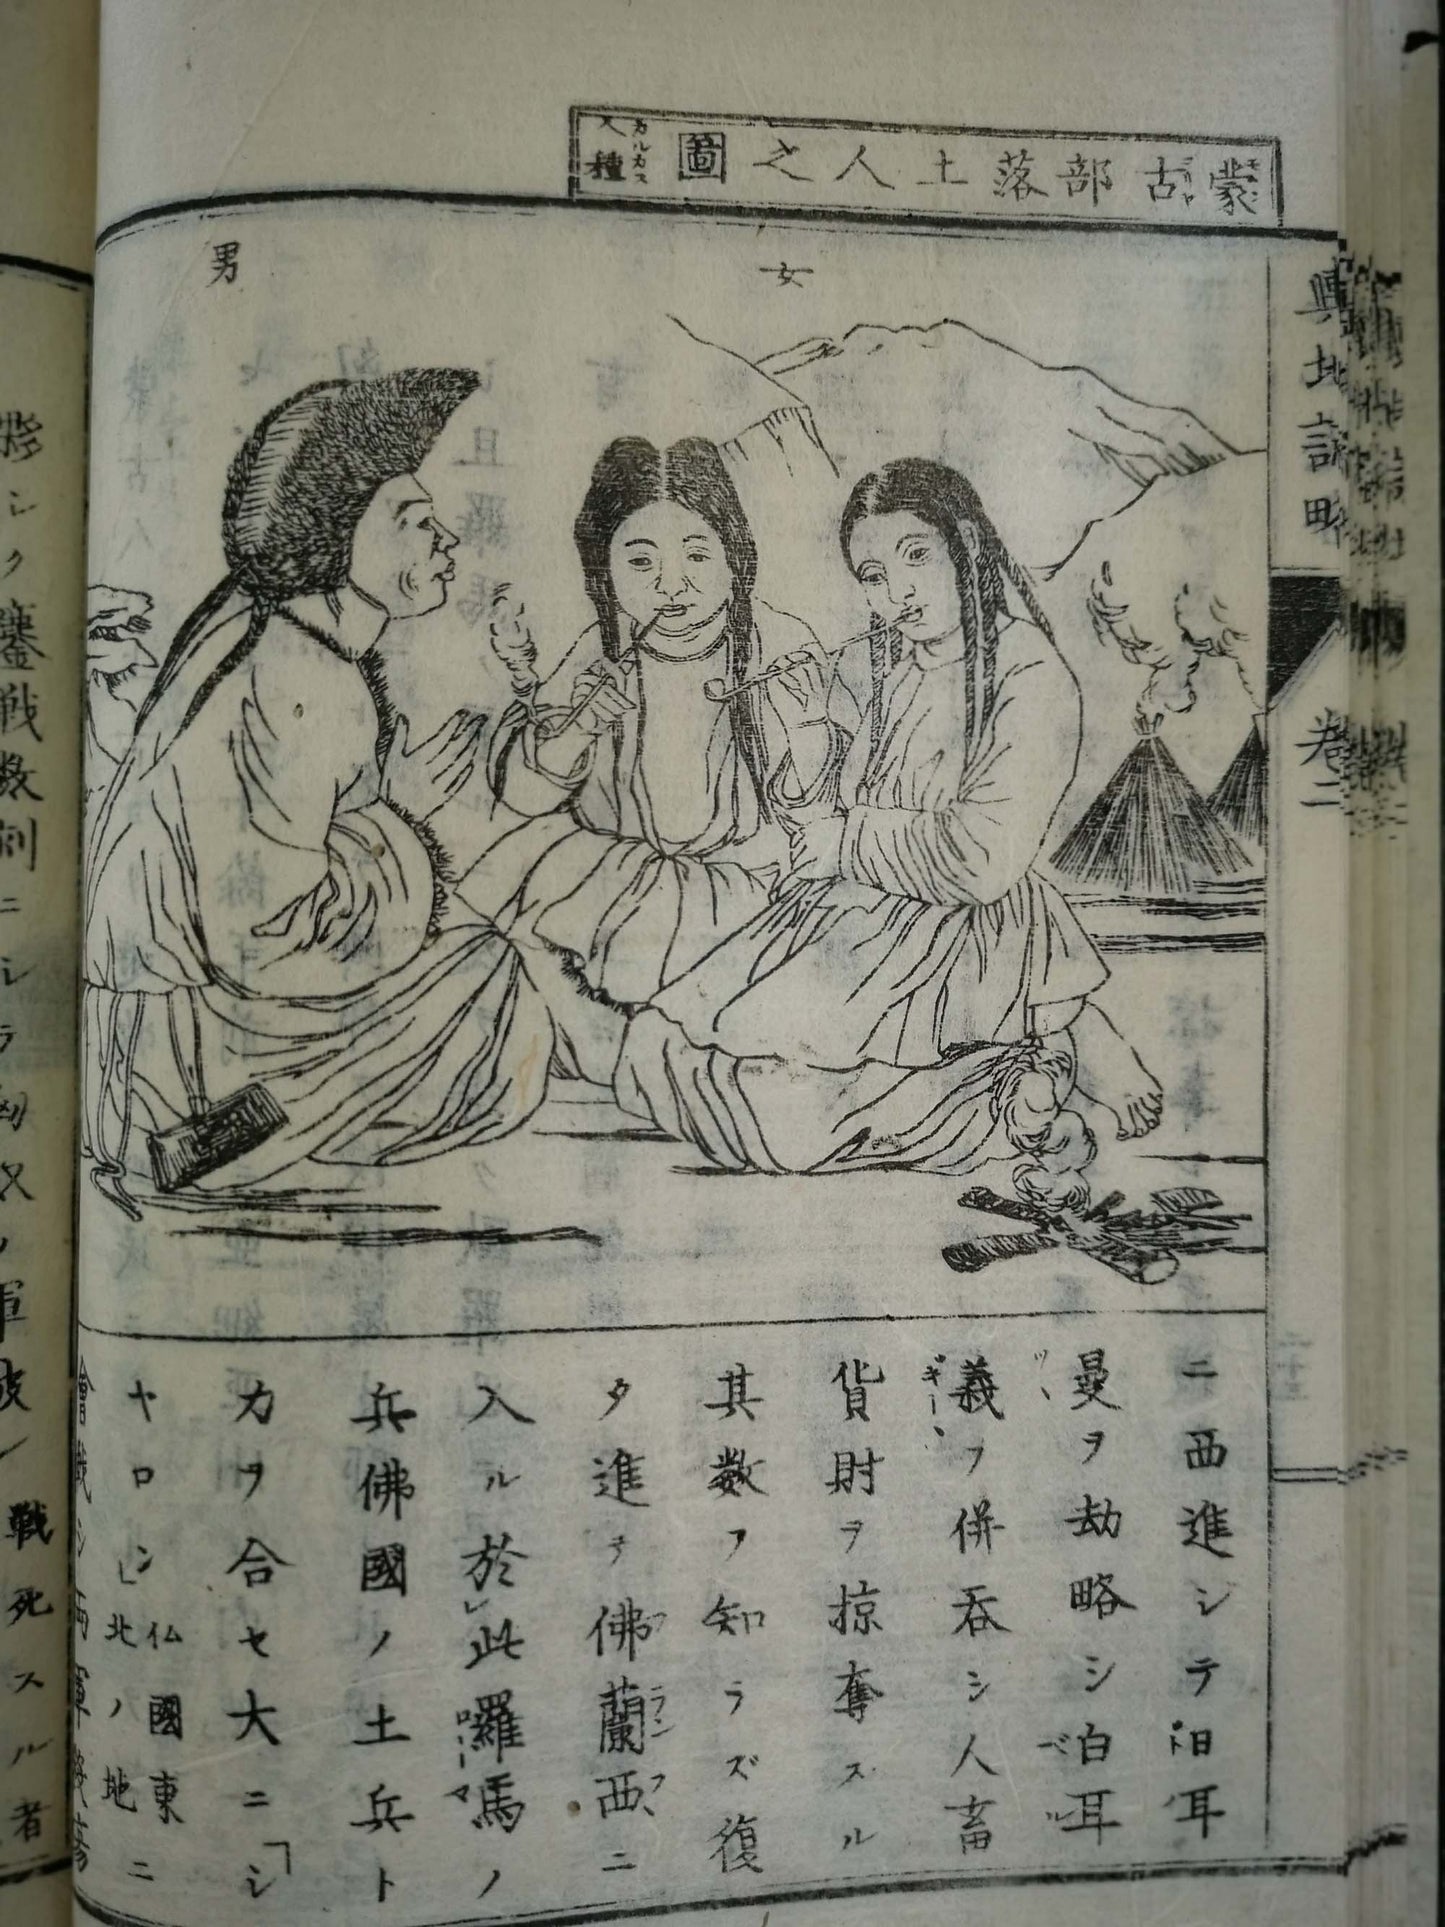 蒙古部落土人之圖
カルカス人種
女
男
輿地誌略
卷二
ニ西進シテ日耳
曼ヲ劫略シ白耳
義ヲ併吞シ人畜
貨財ヲ掠奪スル
其数ヲ知ラズ復
タ進テ佛蘭西ニ
入ル於レ此羅馬ノ
兵佛國ノ土兵ト
力ヲ合セ大ニ「シ
ヤロン」仏國東北ノ地ニ
會戰シ両軍
戰數刻ニシテ匈奴ノ軍
戰死スル者